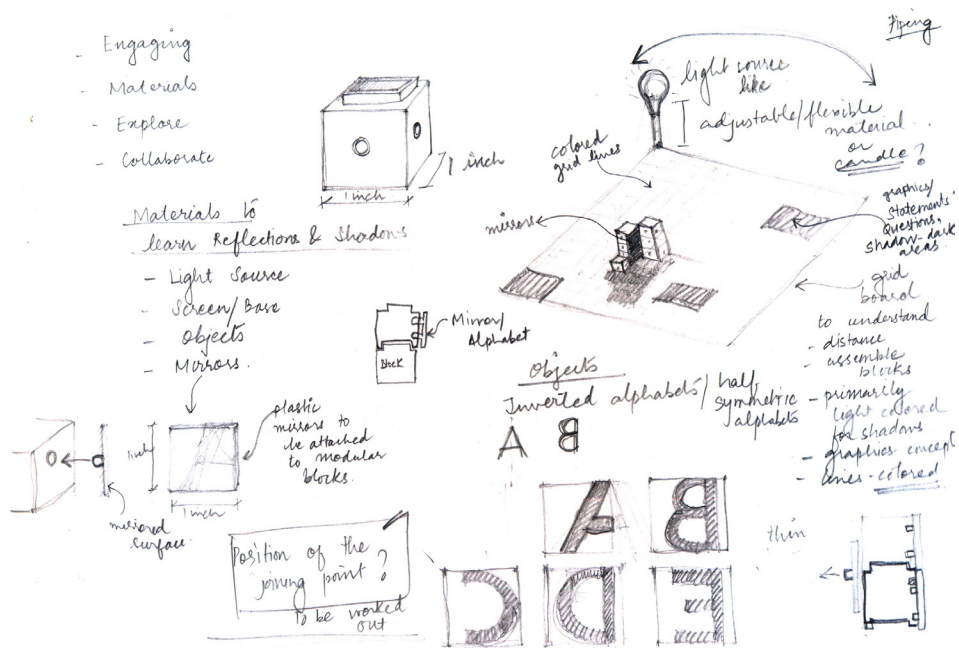 - Engaging
- Materials
- Explore
- Collaborate
1 inch
1 inch
Materials to
learn Reflections & Shadows
- Light Source
- Screen/Base
- Objects
- Mirrors.
Block
Mirror/
Alphabet
plastic
mirrors to
be attached
to modular
blocks.
1 inch
mirrored
surface.
Position of the
joining point?
To be worked
out
Piping
light source
like
adjustable/flexible
material
or
candle?
colored
grid lines
mirrors
graphics/
Statements
Questions,
Shadow-dark
areas
grid
board
to understand
- distance
- assemble
blocks
- primarily
light colored
for shadows
- graphics concept
- lines - colored
Objects
Inverted alphabets/ half,
symmetric
alphabets
A B
A B
C D E
thin